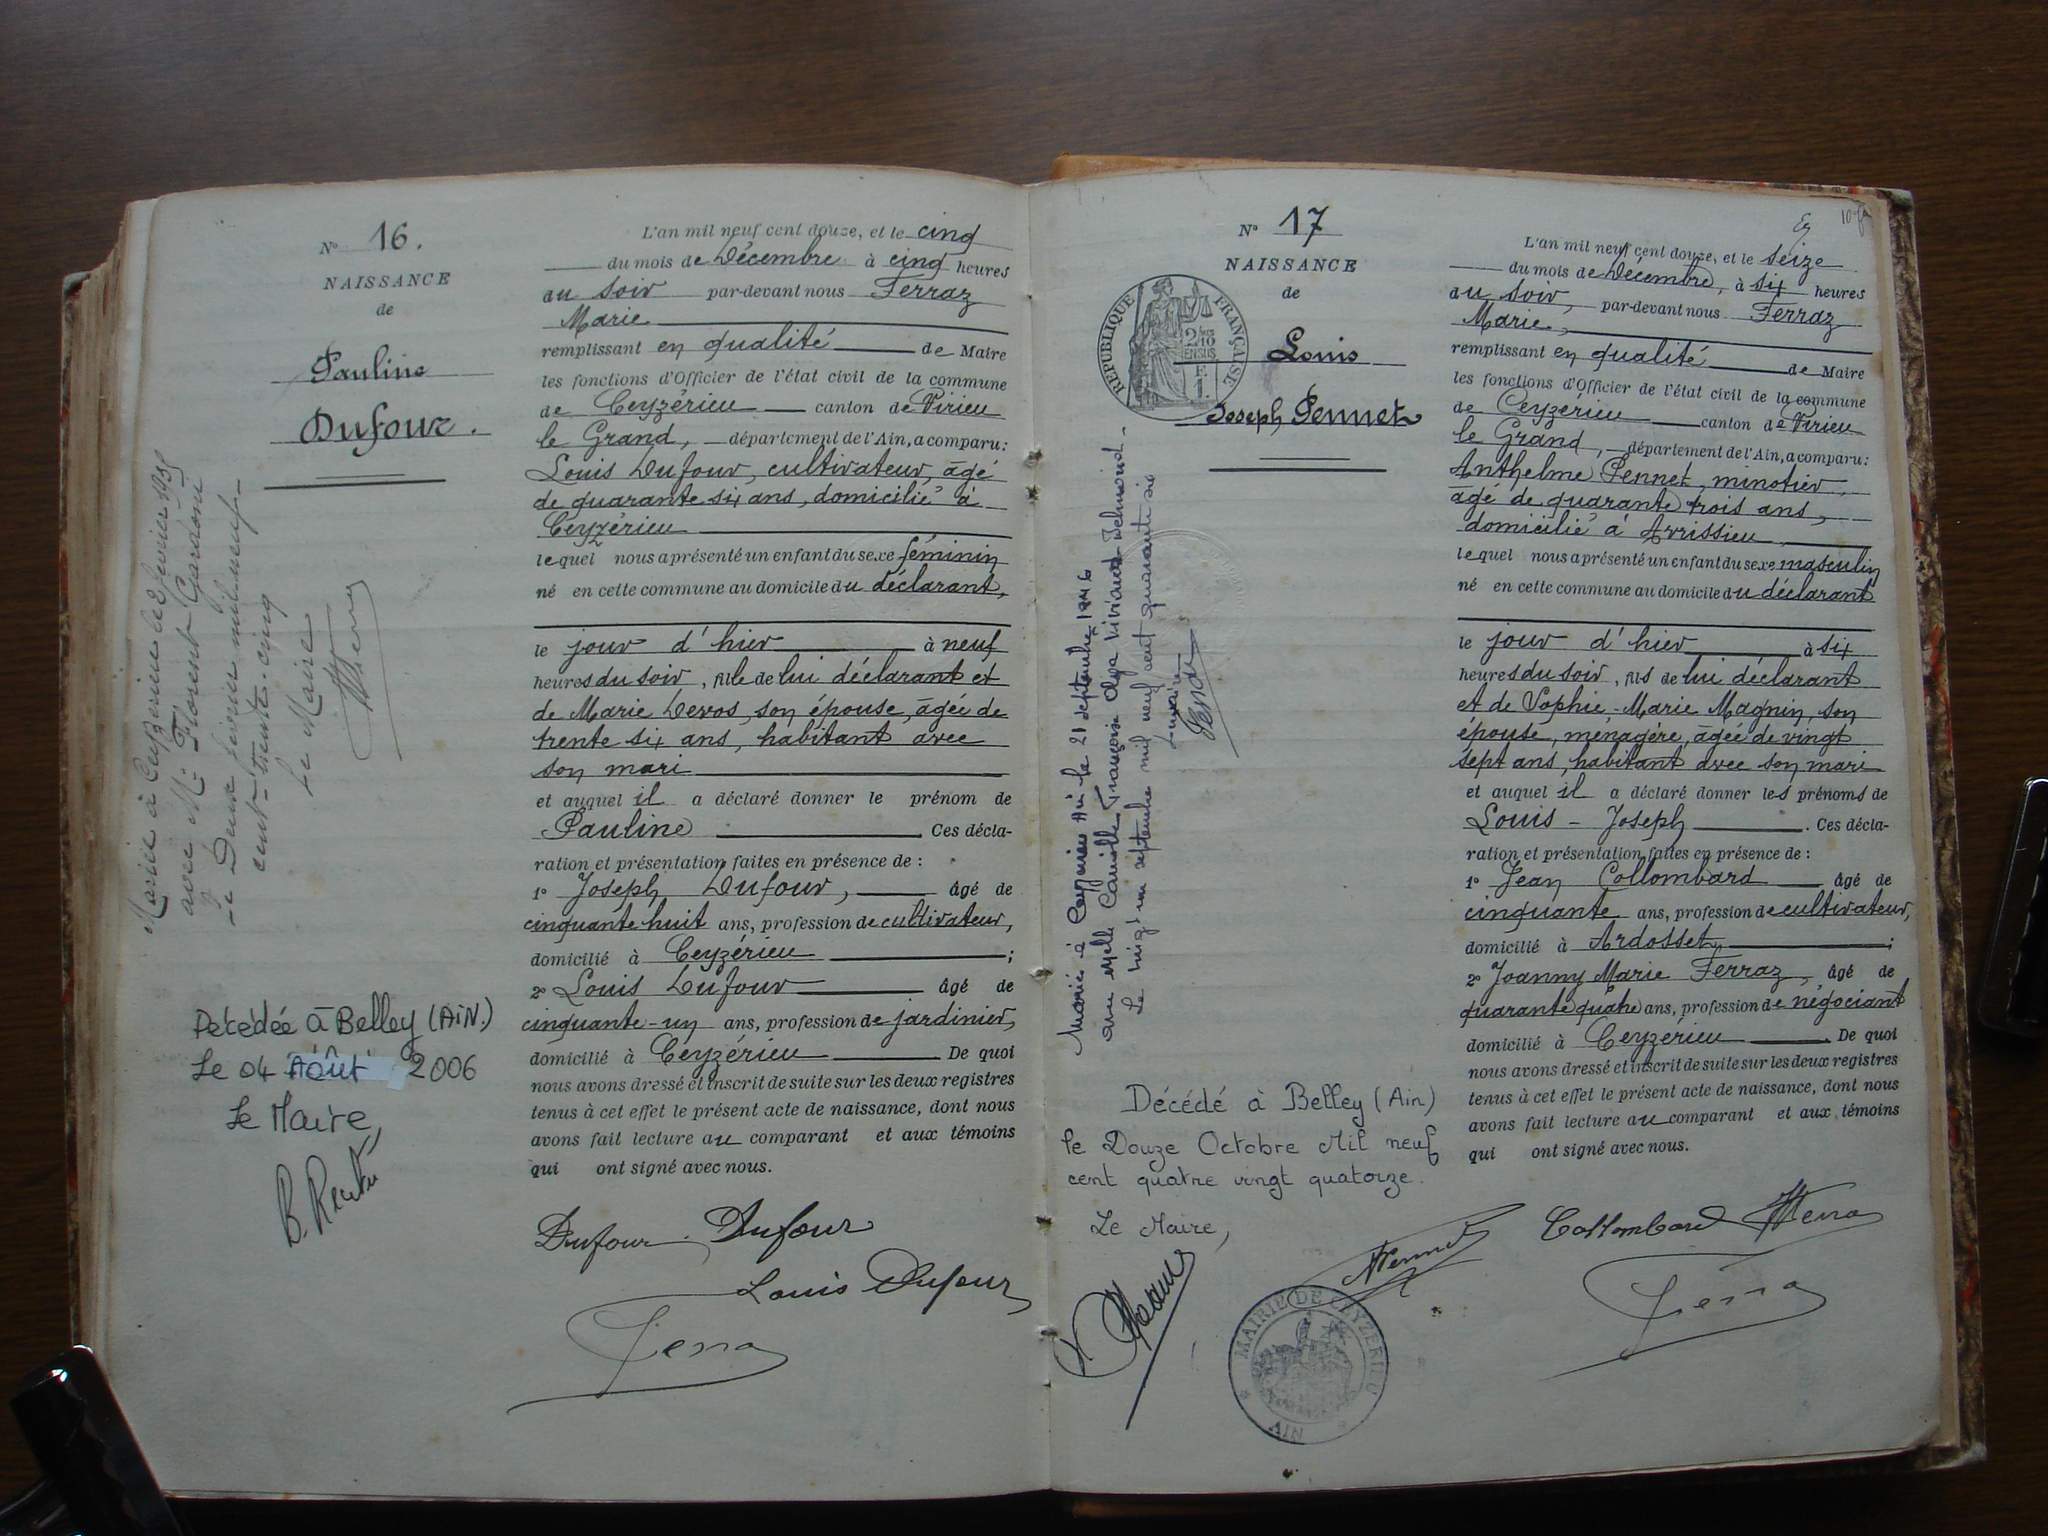 N° 16.
NAISSANCE
de
Pauline
Dufour.
Mariée à Ceyzérieu le 2 février 1935
avec Mr Florent
Le Deux février mil neuf
cent trente-cinq
Le Maire
Décédée à Belley (AIN.)
Le 04 Août 2006
Le Maire,
L'an mil neuf cent douze, et le cinq
du mois de Décembre à cinq heures
du soir par-devant nous Ferraz
Marie
remplissant en qualité de Maire
les fonctions d'Officier de l'état civil de la commune
de Ceyzérieu canton de Virieu
le Grand, département de l'Ain, a comparu:
Louis Dufour, cultivateur, âgé
de quarante six ans, domicilié à
Ceyzérieu
lequel nous a présenté un enfant du sexe féminin
né en cette commune au domicile du déclarant,
le jour d'hier à neuf
heures du soir, fille de lui déclarant et
de Marie Devos, son épouse, âgée de
trente six ans, habitant avec
son mari
et auquel il a déclaré donner le prénom de
Pauline Ces décla-
ration et présentation faites en présence de :
1° Joseph Dufour, âgé de
cinquante-huit ans, profession de cultivateur,
domicilié à Ceyzérieu ;
2° Louis Dufour âgé de
cinquante-un ans, profession de jardinier,
domicilié à Ceyzérieu De quoi
nous avons dressé et inscrit de suite sur les deux registres
tenus à cet effet le présent acte de naissance, dont nous
avons fait lecture au comparant et aux témoins
qui ont signé avec nous.
Dufour Dufour
Louis Dufour
Ferra
N° 17
NAISSANCE
de
RÉPUBLIQUE FRANÇAISE
Louis
Joseph Pennet
Marié à Ceyzérieu Ain le 21 septembre 1946
avec Melle Camille Françoise Olga
Le vingt un septembre mil neuf cent quarante six
Le maire
Décédé à Belley (Ain)
le Douze Octobre Mil neuf
cent quatre vingt quatorze.
Le Maire,
MAIRIE DE CEYZERIEU
AIN
L'an mil neuf cent douze, et le seize
du mois de Décembre, à six heures
du soir, par-devant nous Ferraz
Marie,
remplissant en qualité de Maire
les fonctions d'Officier de l'état civil de la commune
de Ceyzérieu canton de Virieu
le Grand, département de l'Ain, a comparu:
Anthelme Pennet, minotier,
âgé de quarante trois ans,
domicilié à Avrissieu
lequel nous a présenté un enfant du sexe masculin
né en cette commune au domicile du déclarant
le jour d'hier à six
heures du soir, fils de lui déclarant
et de Sophie-Marie Magnin, son
épouse, ménagère, âgée de vingt
sept ans, habitant avec son mari
et auquel il a déclaré donner les prénoms de
Louis - Joseph . Ces décla-
ration et présentation faites en présence de :
1° Jean Collombard âgé de
cinquante ans, profession de cultivateur,
domicilié à Ardosset, ;
2° Joanny Marie Ferraz, âgé de
quarante quatre ans, profession de négociant
domicilié à Ceyzérieu . De quoi
nous avons dressé et inscrit de suite sur les deux registres
tenus à cet effet le présent acte de naissance, dont nous
avons fait lecture au comparant et aux témoins
qui ont signé avec nous.
Pennet Collombard Ferra
Ferra